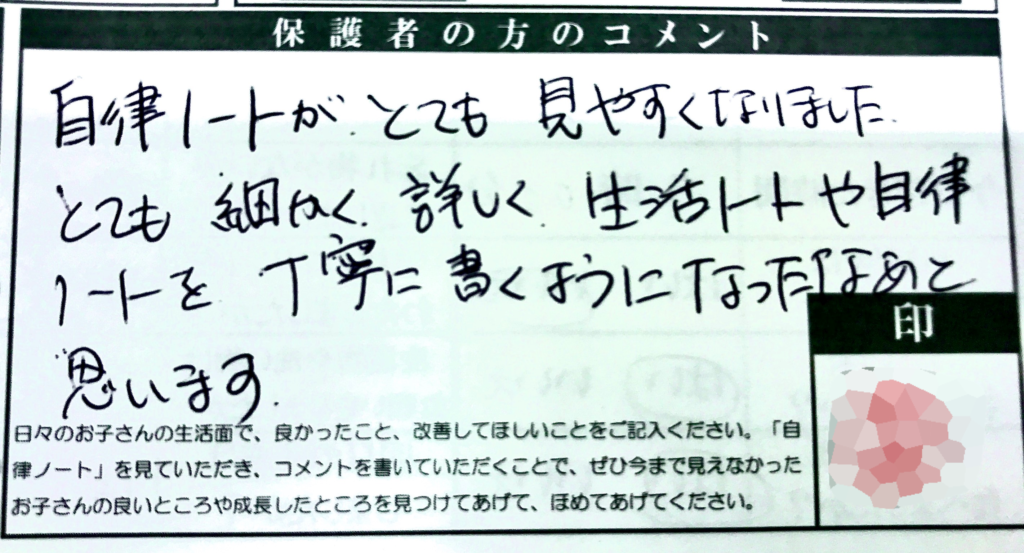 保護者の方のコメント
自律ノートが、とても見やすくなりました。
とても細かく、詳しく、生活ノートや自律
ノートを丁寧に書くようになったなあと
思います。
印
日々のお子さんの生活面で、良かったこと、改善してほしいことをご記入ください。「自
律ノート」を見ていただき、コメントを書いていただくことで、ぜひ今まで見えなかった
お子さんの良いところや成長したところを見つけてあげて、ほめてあげてください。